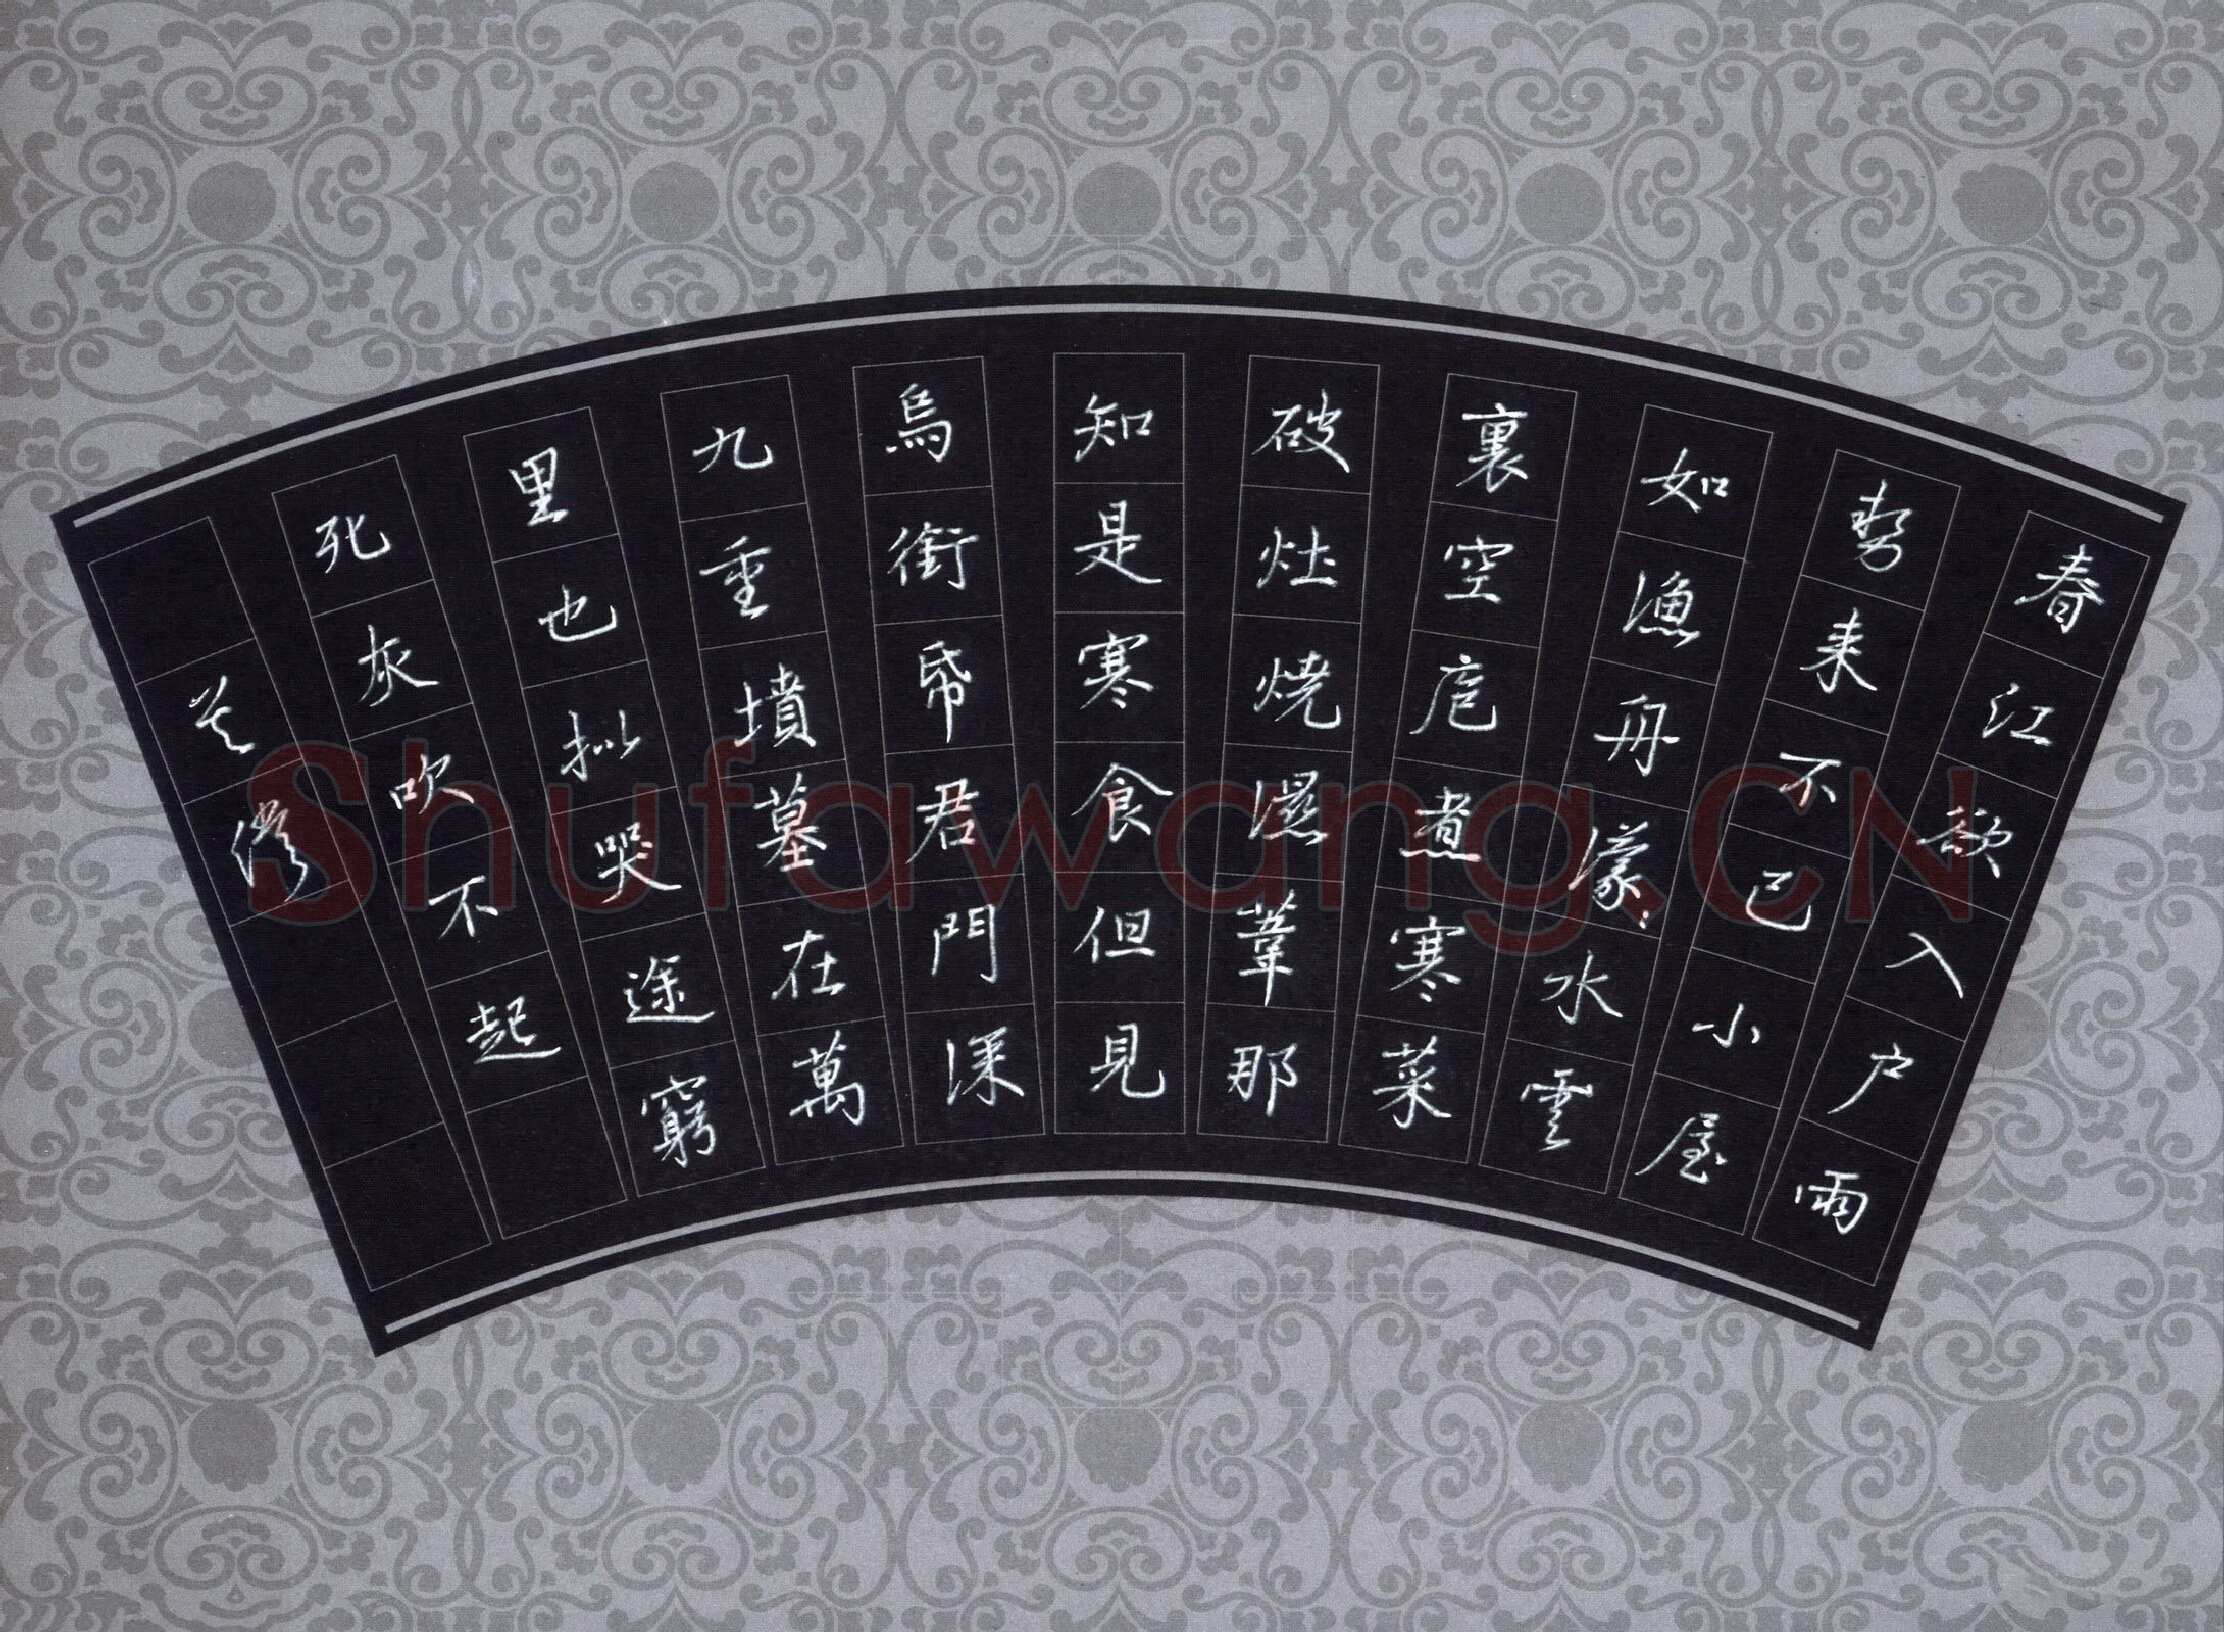 春江欲入户雨
势来不已小屋
如漁舟濛々水雲
裏空庖煮寒菜
破灶焼濕葦那
知是寒食但見
烏銜帋君門深
九重墳墓在萬
里也拟哭途窮
死灰吹不起
Shufawang.CN